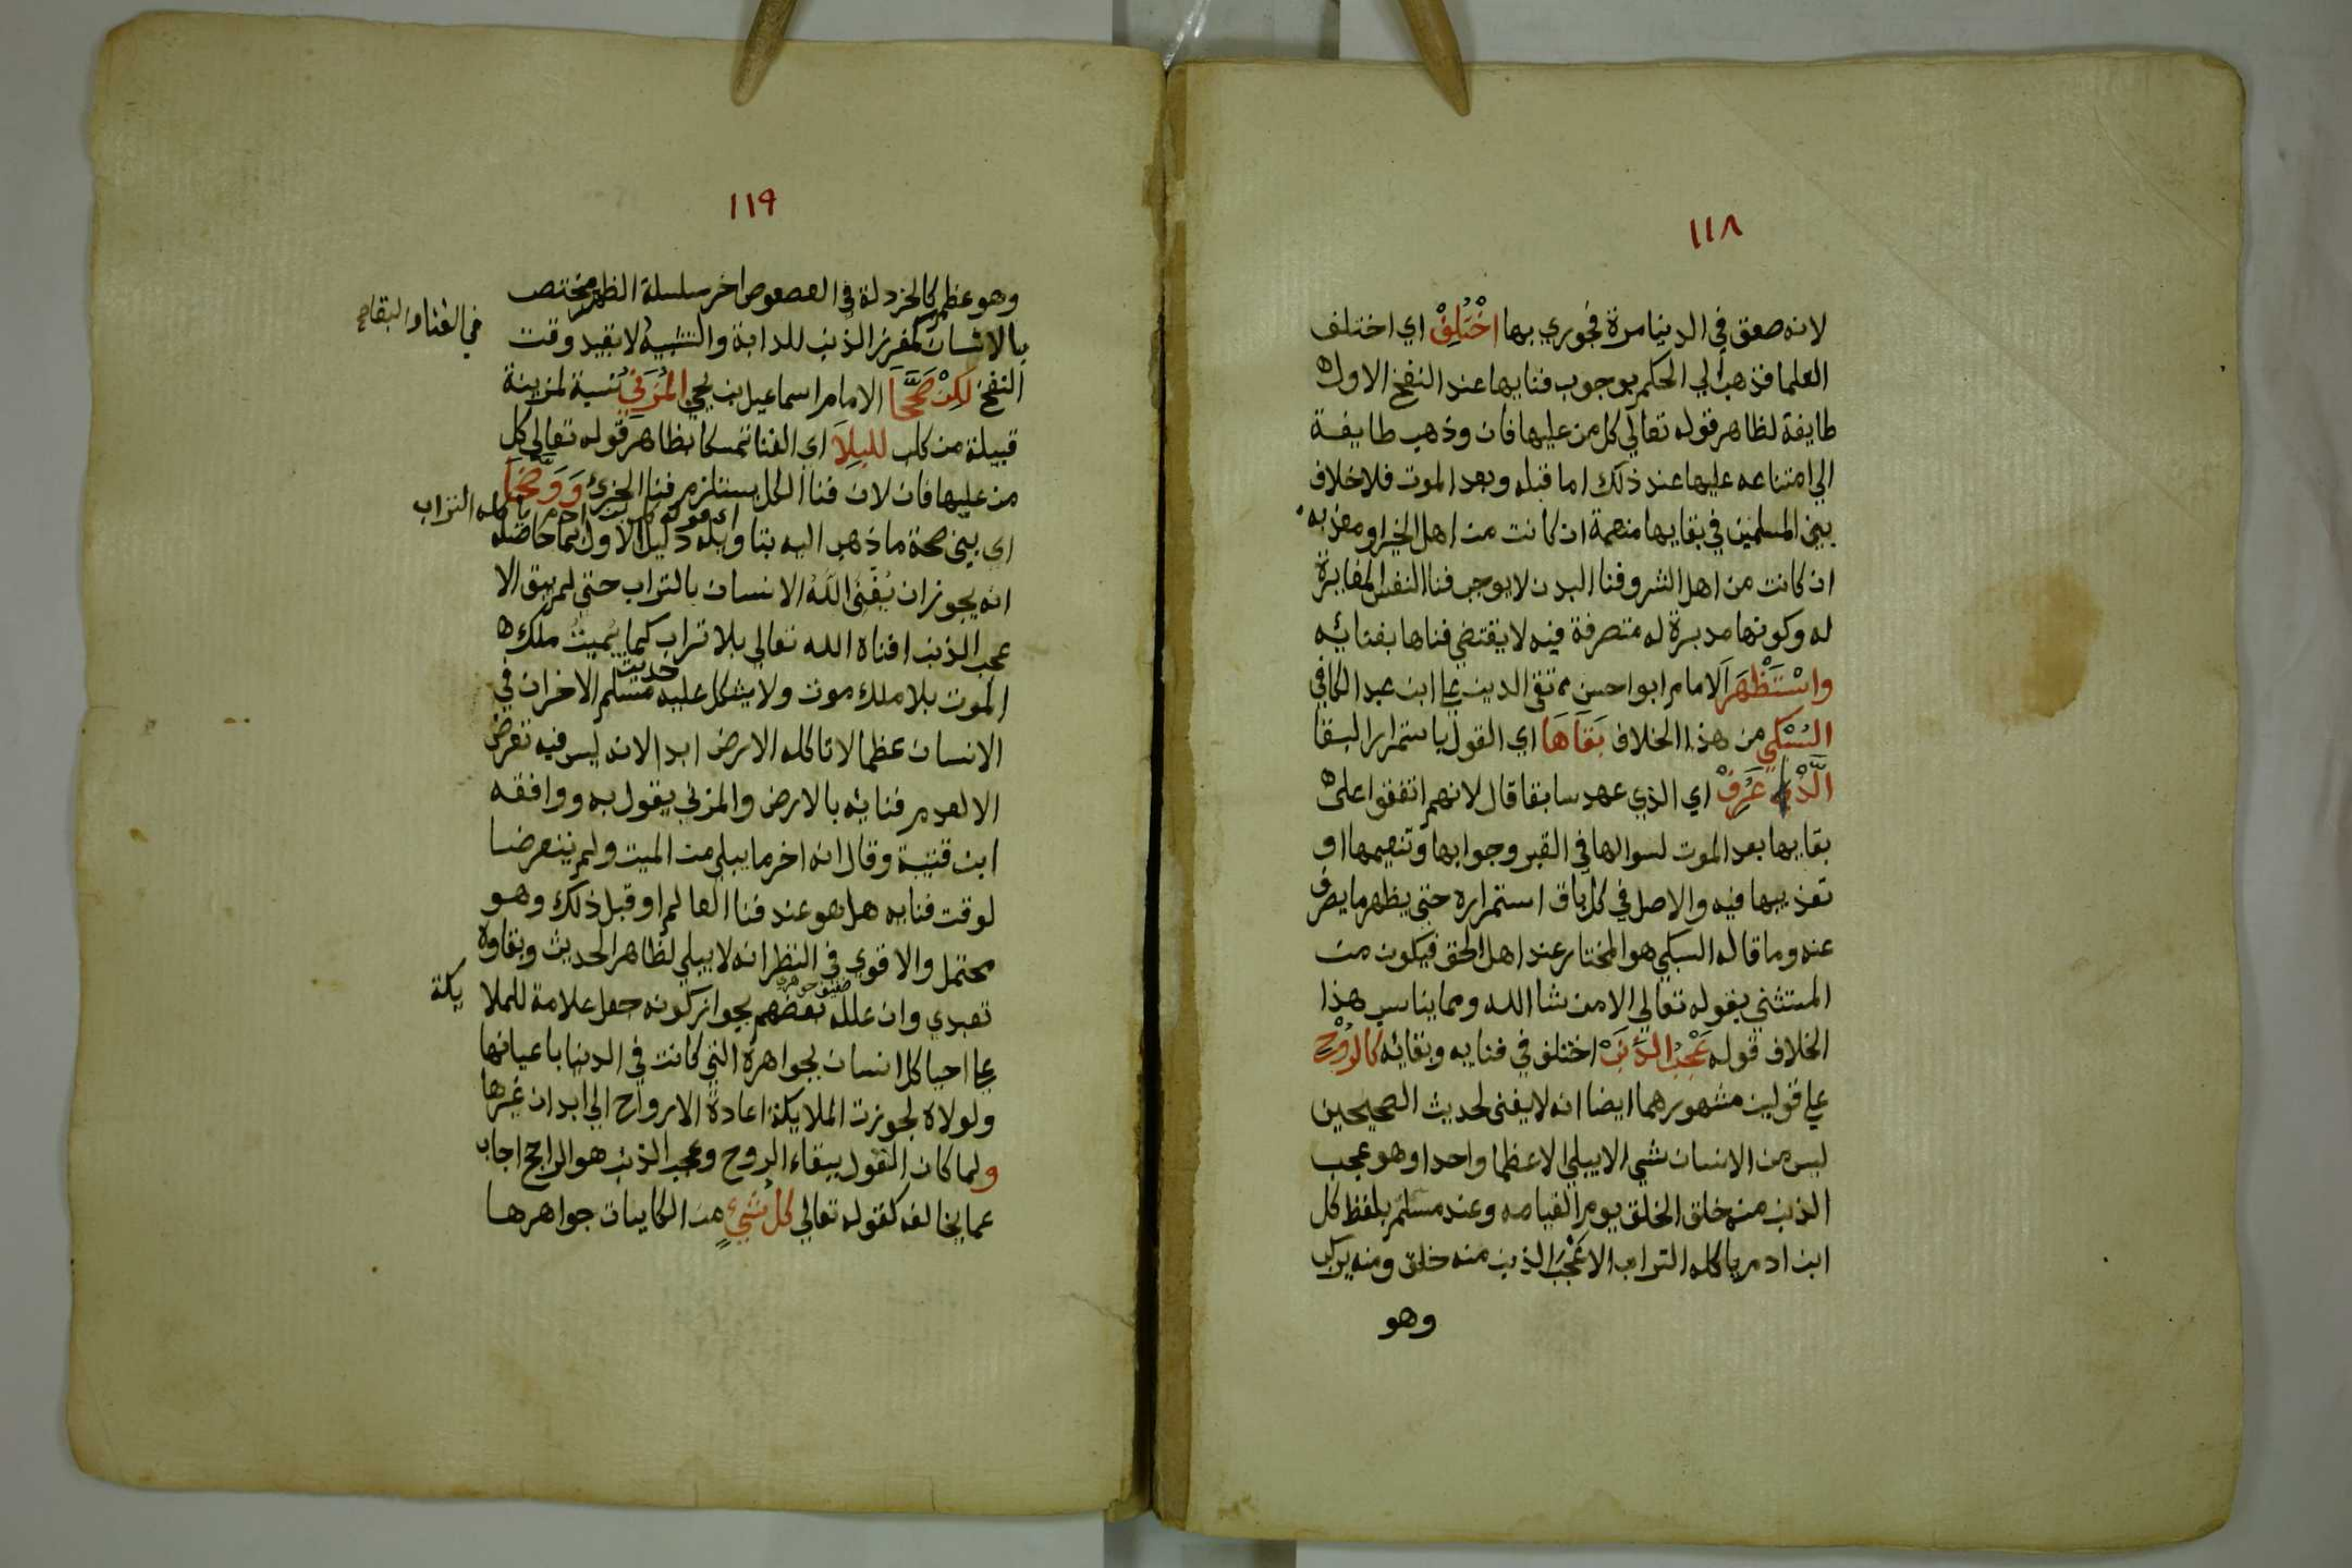 ١١٨
لانه صعق في الدنيا مرة فجوزي بها اخْتُلِفْ اي اختلف
العلما فذهب الي الحكم بوجوب فنايها عند النفخ الاول
طايفة لظاهر قوله تعالي كل من عليها فان وذهب طايفة
الي امتناعه عليها عند ذلك اما قبله وبعد الموت فلا خلاف
بين المسلمين في بقايها منعمة ان كانت من اهل الخير او معذبه
ان كانت من اهل الشر وفنا البدن لا يوجب فنا النفس المغايرة
له وكونها مدبرة له متصرفة فيه لا يقتضي فناها بفنائه
واسْتَظْهَرَ الامام ابو احسن تقي الدين علي ابن عبد الكافي
السُبْكي من هذا الخلاف بَقَاهَا اي القول باستمرار البقا
الَّذْ عُرِفْ اي الذي عهد سابقا قال لانهم اتفقوا على
بقايها بعد الموت لسوالها في القبر وجوابها وتنعيمها او
تعذيبها فيه والاصل في كل باق استمراره حتي يظهر ما يصرف
عنه وما قاله السبكي هو المختار عند اهل الحق فيكون من
المستثني بقوله تعالي الا من شا الله ومما يناسب هذا
الخلاف قوله عَجْبُ الذَّنَبْ اختلف في فنايه وبقائه كالرُوْحِ
علي قولين مشهورهما ايضا انه لا يفنى لحديث الصحيحين
ليس من الانسان شي الا يبلي الا عظما واحدا وهو عجب
الذنب منه خلق الخلق يوم القيامه وعند مسلم بلفظ كل
ابن ادم ياكله التراب الا عَجْبَ الذنب منه خلق ومنه يركب
وهو
١١٩
وهو عظم كالخردلة في العصعوص اخر سلسلة الظهر مختص
بالانسان كمغرز الذنب للدابة والتشبيه لا بقيد وقت
في الفناء والبقاء
النفخ لَكِنْ صَحَّحَا الامام اسماعيل بن يحي المُزَني نسبة لمزينة
قبيلة من كلب للبِلَا اي الفنا تمسكا بظاهر قوله تعالي كل
من عليها فان لان فنا الكل يستلزم فنا الجزئ وَوَضَّحَا
اي قوله كل ابن ادم ياكله التراب
اي بين صحة ما ذهب اليه بتاويله دليل الاول بما حاصله
انه يجوز ان يُفْنِيَ اللهُ الانسان بالتراب حتي لم يبق الا
عجب الذنب افناه الله تعالي بلا تراب كما يُمِيتُ ملك
الموت بلا ملك موت ولا يشكل عليه حديث مسلم الاخر ان في
الانسان عظما لا تاكله الارض ابدا لانه ليس فيه تعرض
الا لعدم فنايه بالارض والمزني يقول به ووافقه
ابن قتيبة وقال انه اخر ما يبلي من الميت ولم يتعرضا
لوقت فنايه هل هو عند فنا العالم او قبل ذلك وهو
محتمل والاقوي في النظر انه لا يبلي لظاهر الحديث وبقاوه
تعبدي وان علله بعضهم بجواز كونه جعل علامة للملا يكة
علي احيا كل انسان بجواهره التي كانت في الدنيا باعيانها
ولولاه لجوزت الملايكة اعادة الارواح الي ابدان غيرها
ولما كان القول ببقاء الروح وعجب الذنب هو الراجح اجاب
عما يخالفه كقوله تعالي كل شيءٍ من الكاينات جواهرها